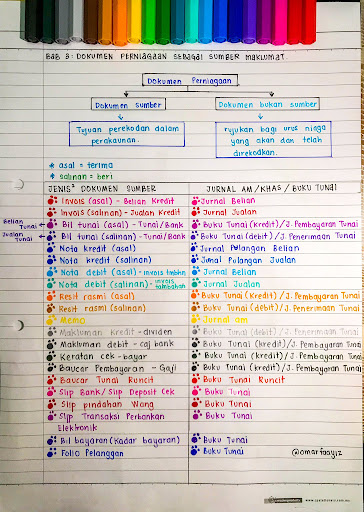 BAB 3: DOKUMEN PERNIAGAAN SEBAGAI SUMBER MAKLUMAT
Dokumen Perniagaan
Dokumen sumber
Dokumen bukan sumber
Tujuan perekodan dalam
perakaunan.
rujukan bagi urus niaga
yang akan dan telah
direkodkan.
* asal = terima
* salinan = beri
JENIS² DOKUMEN SUMBER
JURNAL AM/KHAS/BUKU TUNAI
Invois (asal) - Belian Kredit
Jurnal Belian
Invois (salinan) - Jualan Kredit
Jurnal Jualan
Belian Tunai
Bil tunai (asal) - Tunai/Bank
Buku Tunai (Kredit)/J. Pembayaran Tunai
Jualan Tunai
Bil tunai (salinan) - Tunai/Bank
Buku Tunai (debit)/J. Penerimaan Tunai
Nota kredit (asal)
Jurnal Pulangan Belian
Nota kredit (salinan)
Jurnal Pulangan Jualan
Nota debit (asal) - invois tmbhn
Jurnal Belian
Nota debit (salinan) - invois tambahan
Jurnal Jualan
Resit rasmi (asal)
Buku Tunai (Kredit)/J. Pembayaran Tunai
Resit rasmi (salinan)
Buku Tunai (debit)/J. Penerimaan Tunai
Memo
Jurnal am
Makluman Kredit - dividen
Buku Tunai (debit)/J. Penerimaan Tunai
Makluman debit - caj bank
Buku Tunai (kredit)/J. Pembayaran Tunai
Keratan cek - bayar
Buku Tunai (kredit)/J. Pembayaran Tunai
Baucar Pembayaran - Gaji
Buku Tunai (kredit)/J. Pembayaran Tunai
Baucar Tunai Runcit
Buku Tunai Runcit
Slip Bank/Slip Deposit Cek
Buku Tunai
Slip pindahan Wang
Buku Tunai
Slip Transaksi Perbankan
Elektronik
Buku Tunai
Bil bayaran (Kadar bayaran)
Buku Tunai
Folio Pelanggan
Buku Tunai
@omarfaayiz